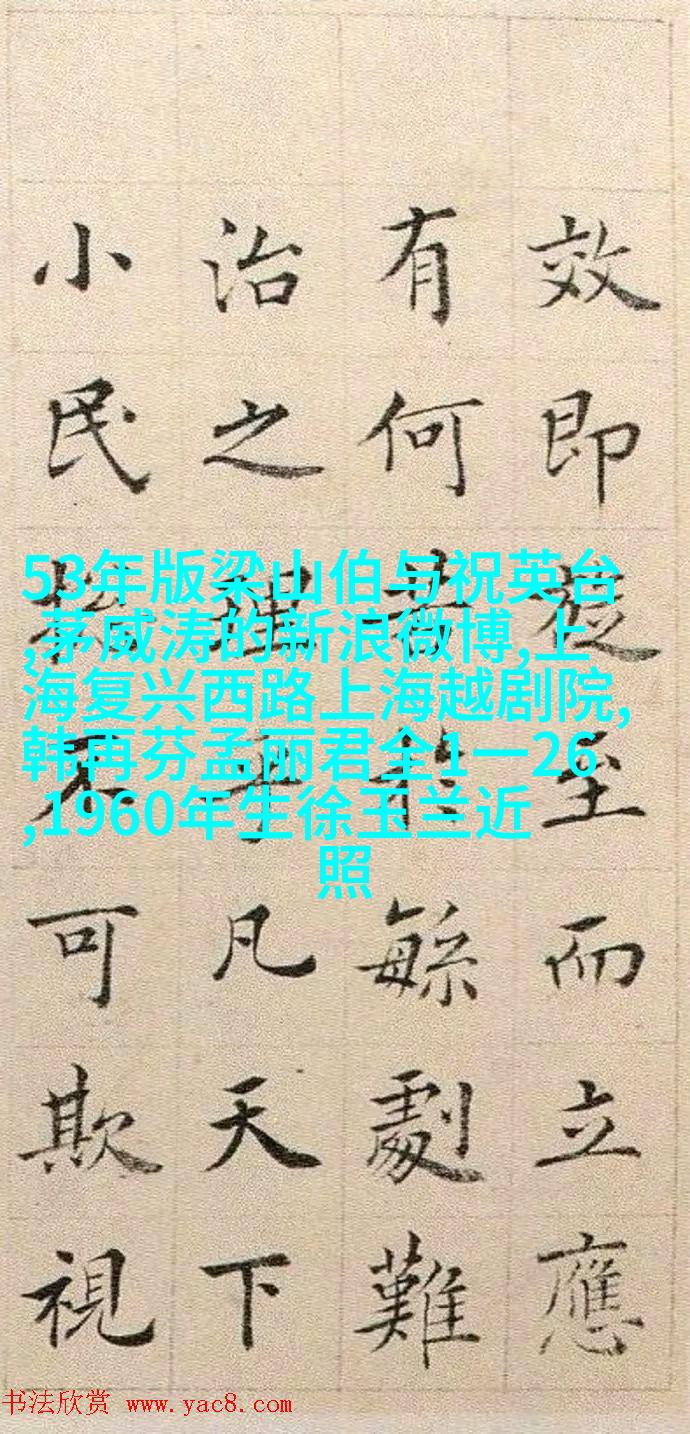 效即至而立應
有何於緐劇難
治之理乎凡天下
小民不可欺視
53年版梁山伯与祝英台
,茅威涛的新浪微博,上
海复兴西路上海越剧院,
韩再芬孟丽君全1一26
,1960年生徐玉兰近
照
书法欣赏 www.yac8.com